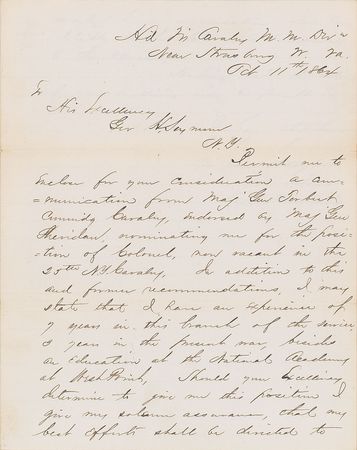 Hd Qrs Cavalry M. M. Divn
Near Strasburg W. Va.
Oct 11th 1864
To
His Excellency
Gov H. Seymour
N.Y.
Permit me to
enclose for your consideration a com-
=munication from Maj Genl Torbert
Commdg Cavalry, endorsed by Maj Gen
Sheridan, nominating me for the posi-
=tion of Colonel, now vacant in the
25th N.Y. Cavalry. In addition to this
and former recommendations, I may
state that I have an experience of
7 years in this branch of the service
3 years in the present war, besides
an Education at the National Academy
at West Point, Should your Excellency
determine to give me this position I
give my solemn assurance, that my
best efforts shall be directed to